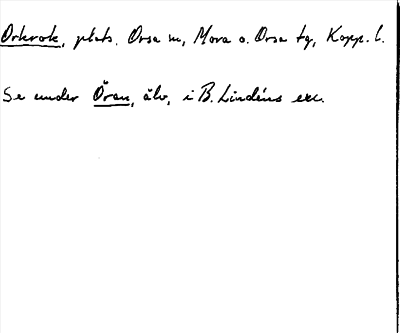 Orkrok, plats. Orsa sn, Mora o. Orsa tg, Kopp. l.
Se under Öran, älv, i B. Lindéns exc.